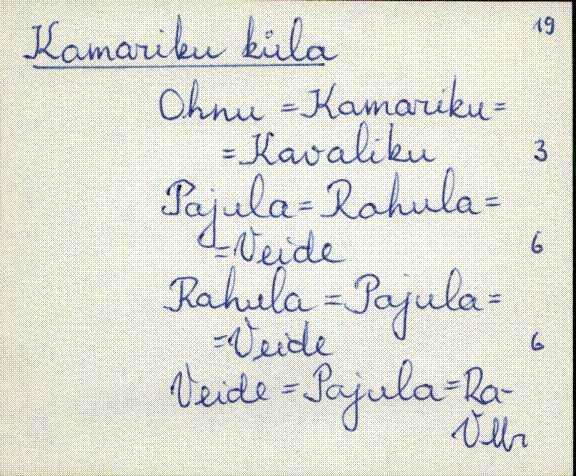 19
Kamariku küla
Ohnu = Kamariku =
= Kavaliku 3
Pajula = Rahula =
= Veide 6
Rahula = Pajula =
= Veide 6
Veide = Pajula = Ra-